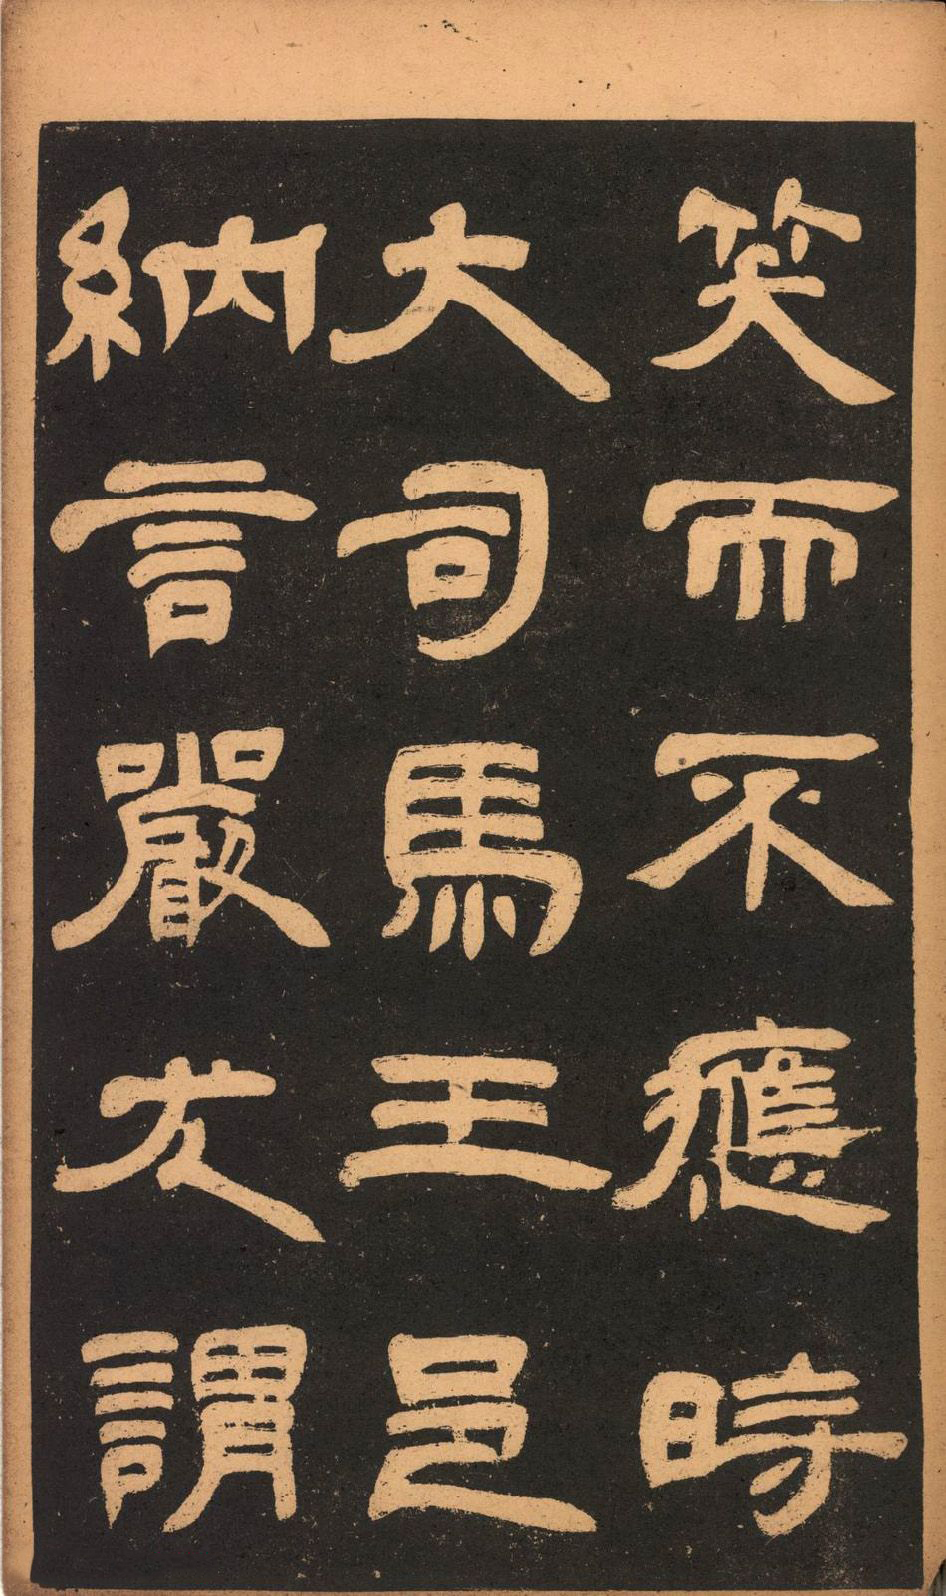 笑而不應時
大司馬王邑
納言嚴尤謂